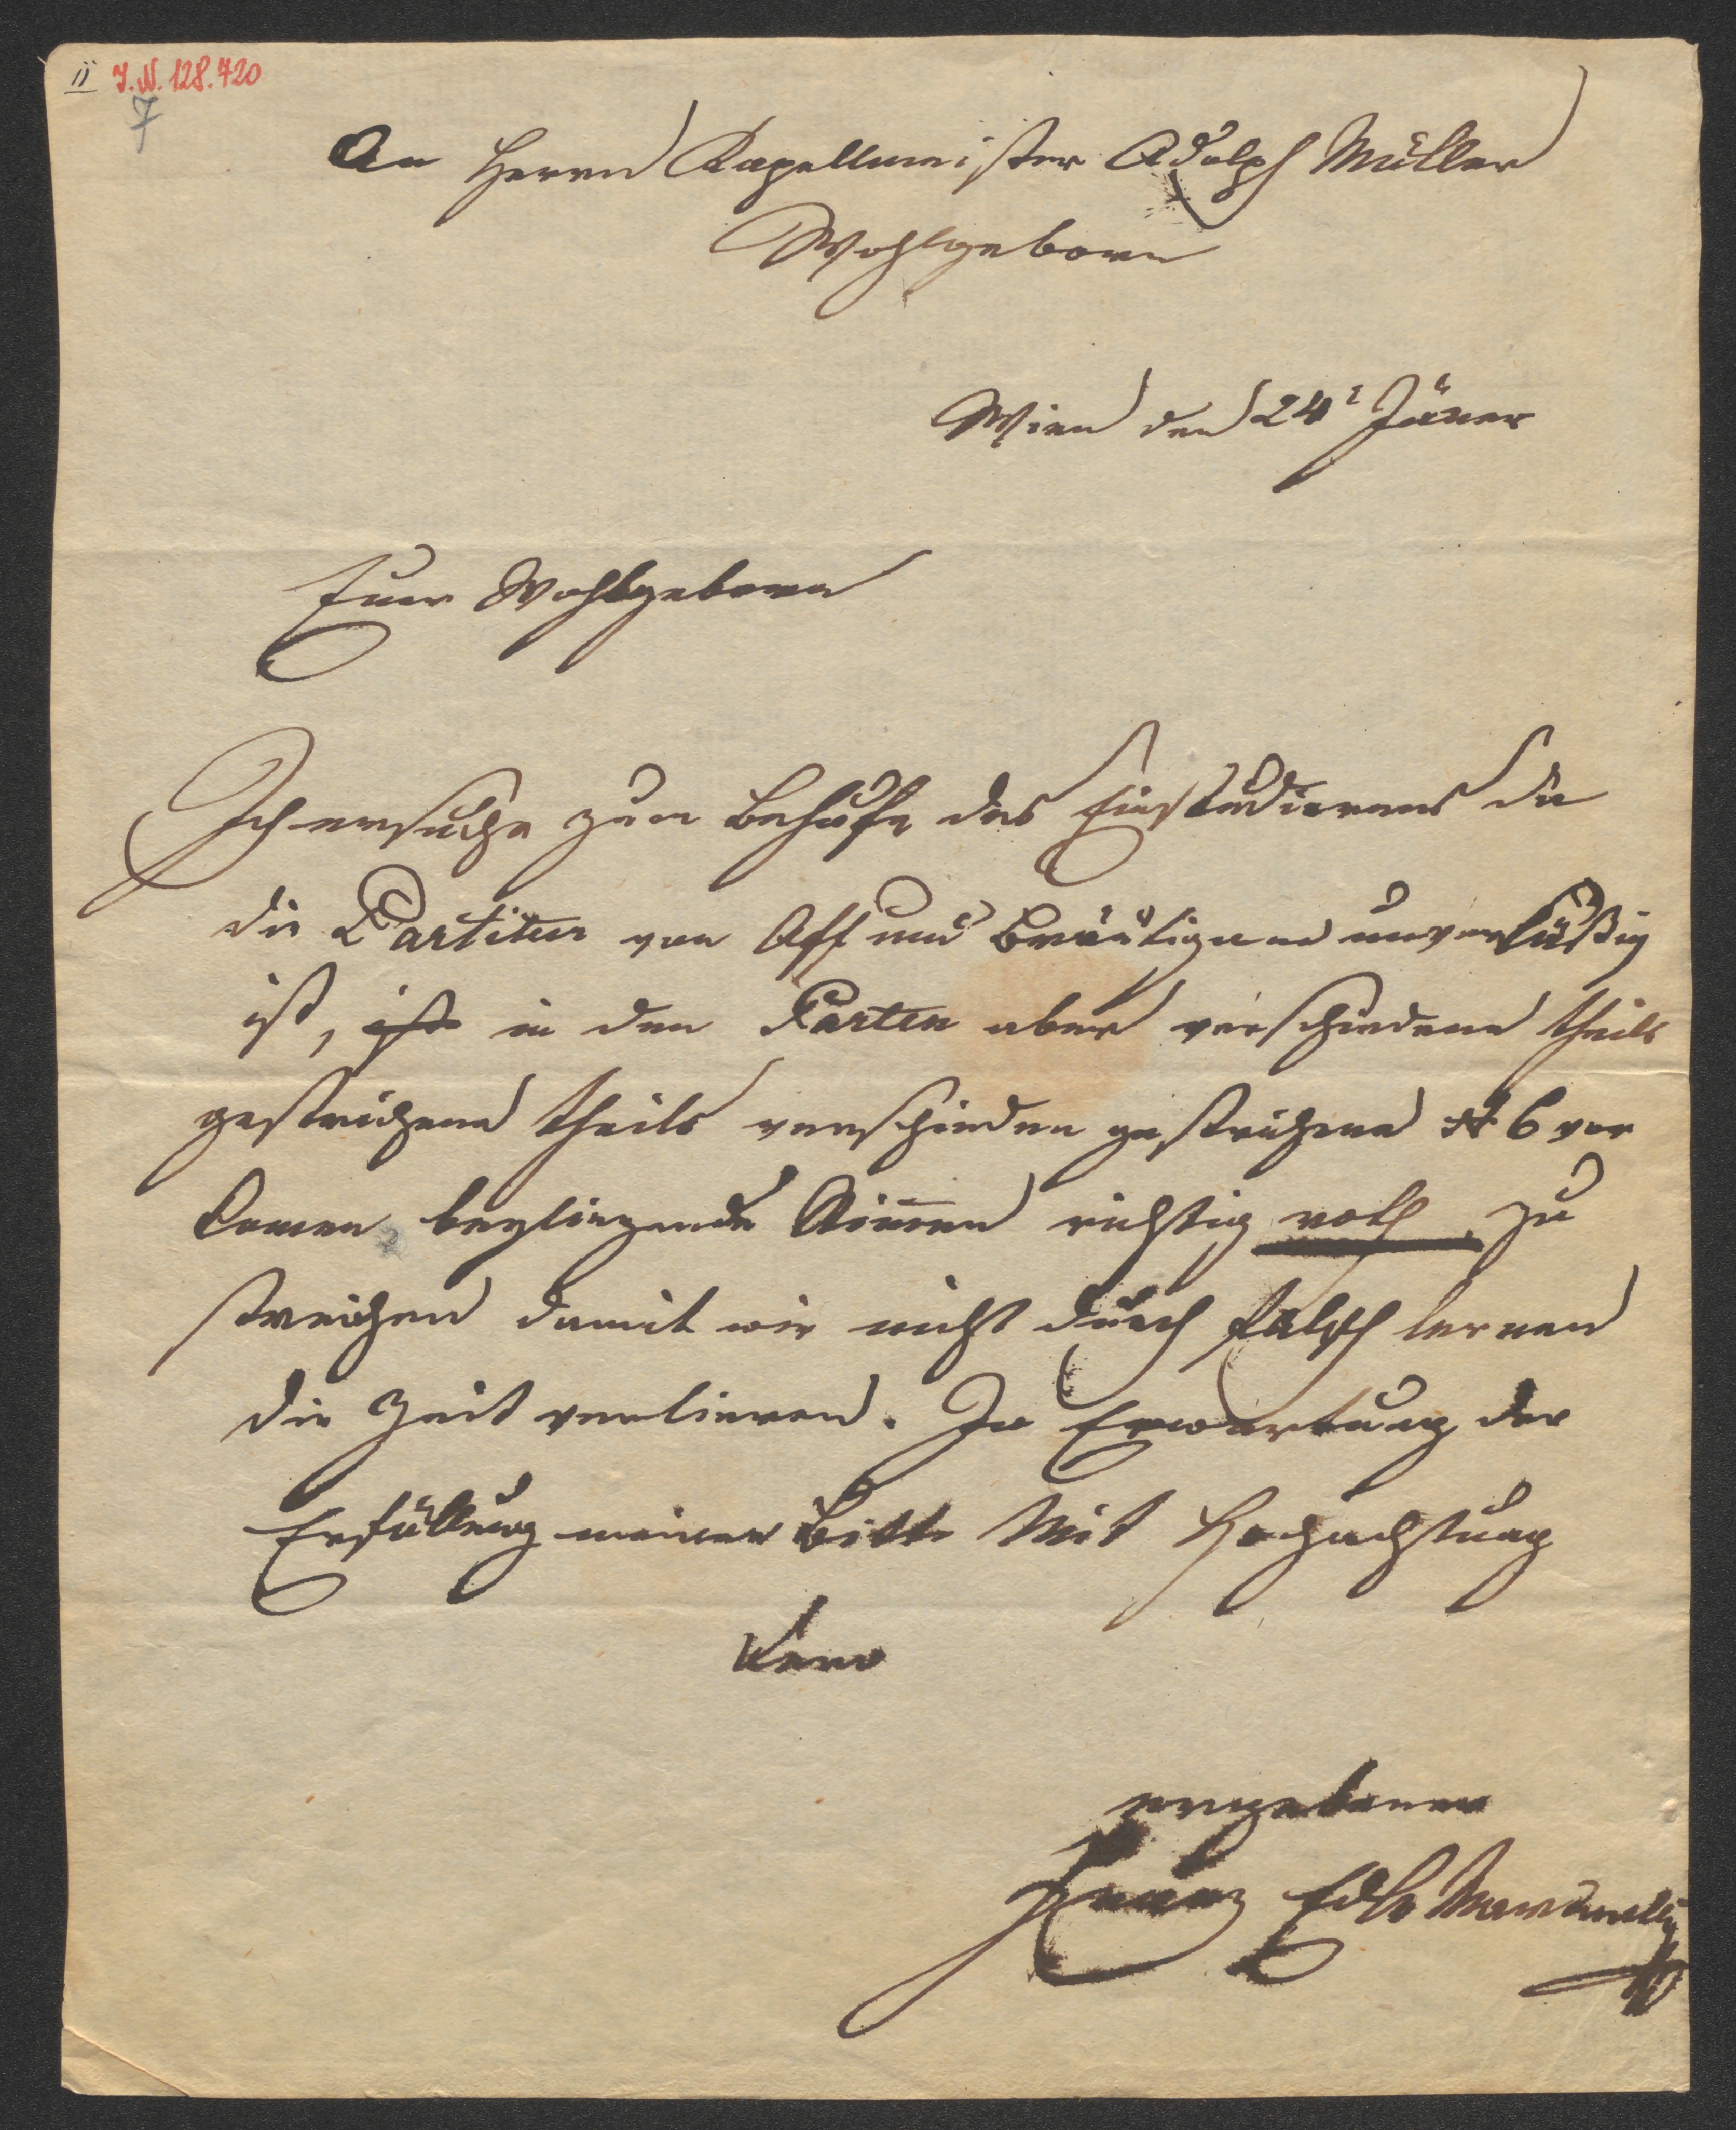 II J. N. 128.720
7
An Herrn Kapellmeister Adolph Müller
Wohlgeborn
Wien den 24t Jäner
Euer Wohlgeborn
Ich ersuche zum Behufe des Einstudierens da
die Partitur von Aff und Bräutigam unverläßig
ist, in den Parten aber verschiedene theils
gestrichene theils verschieden gestrichene No 6 vor
komen beyliegende Stimen richtig roth zu
streichen damit wir nicht durch falsch lernen
die Zeit verlieren. In Erwartung der
Erfüllung meiner Bitte Mit Hochachtung
Dero
ergebener
Franz Edler